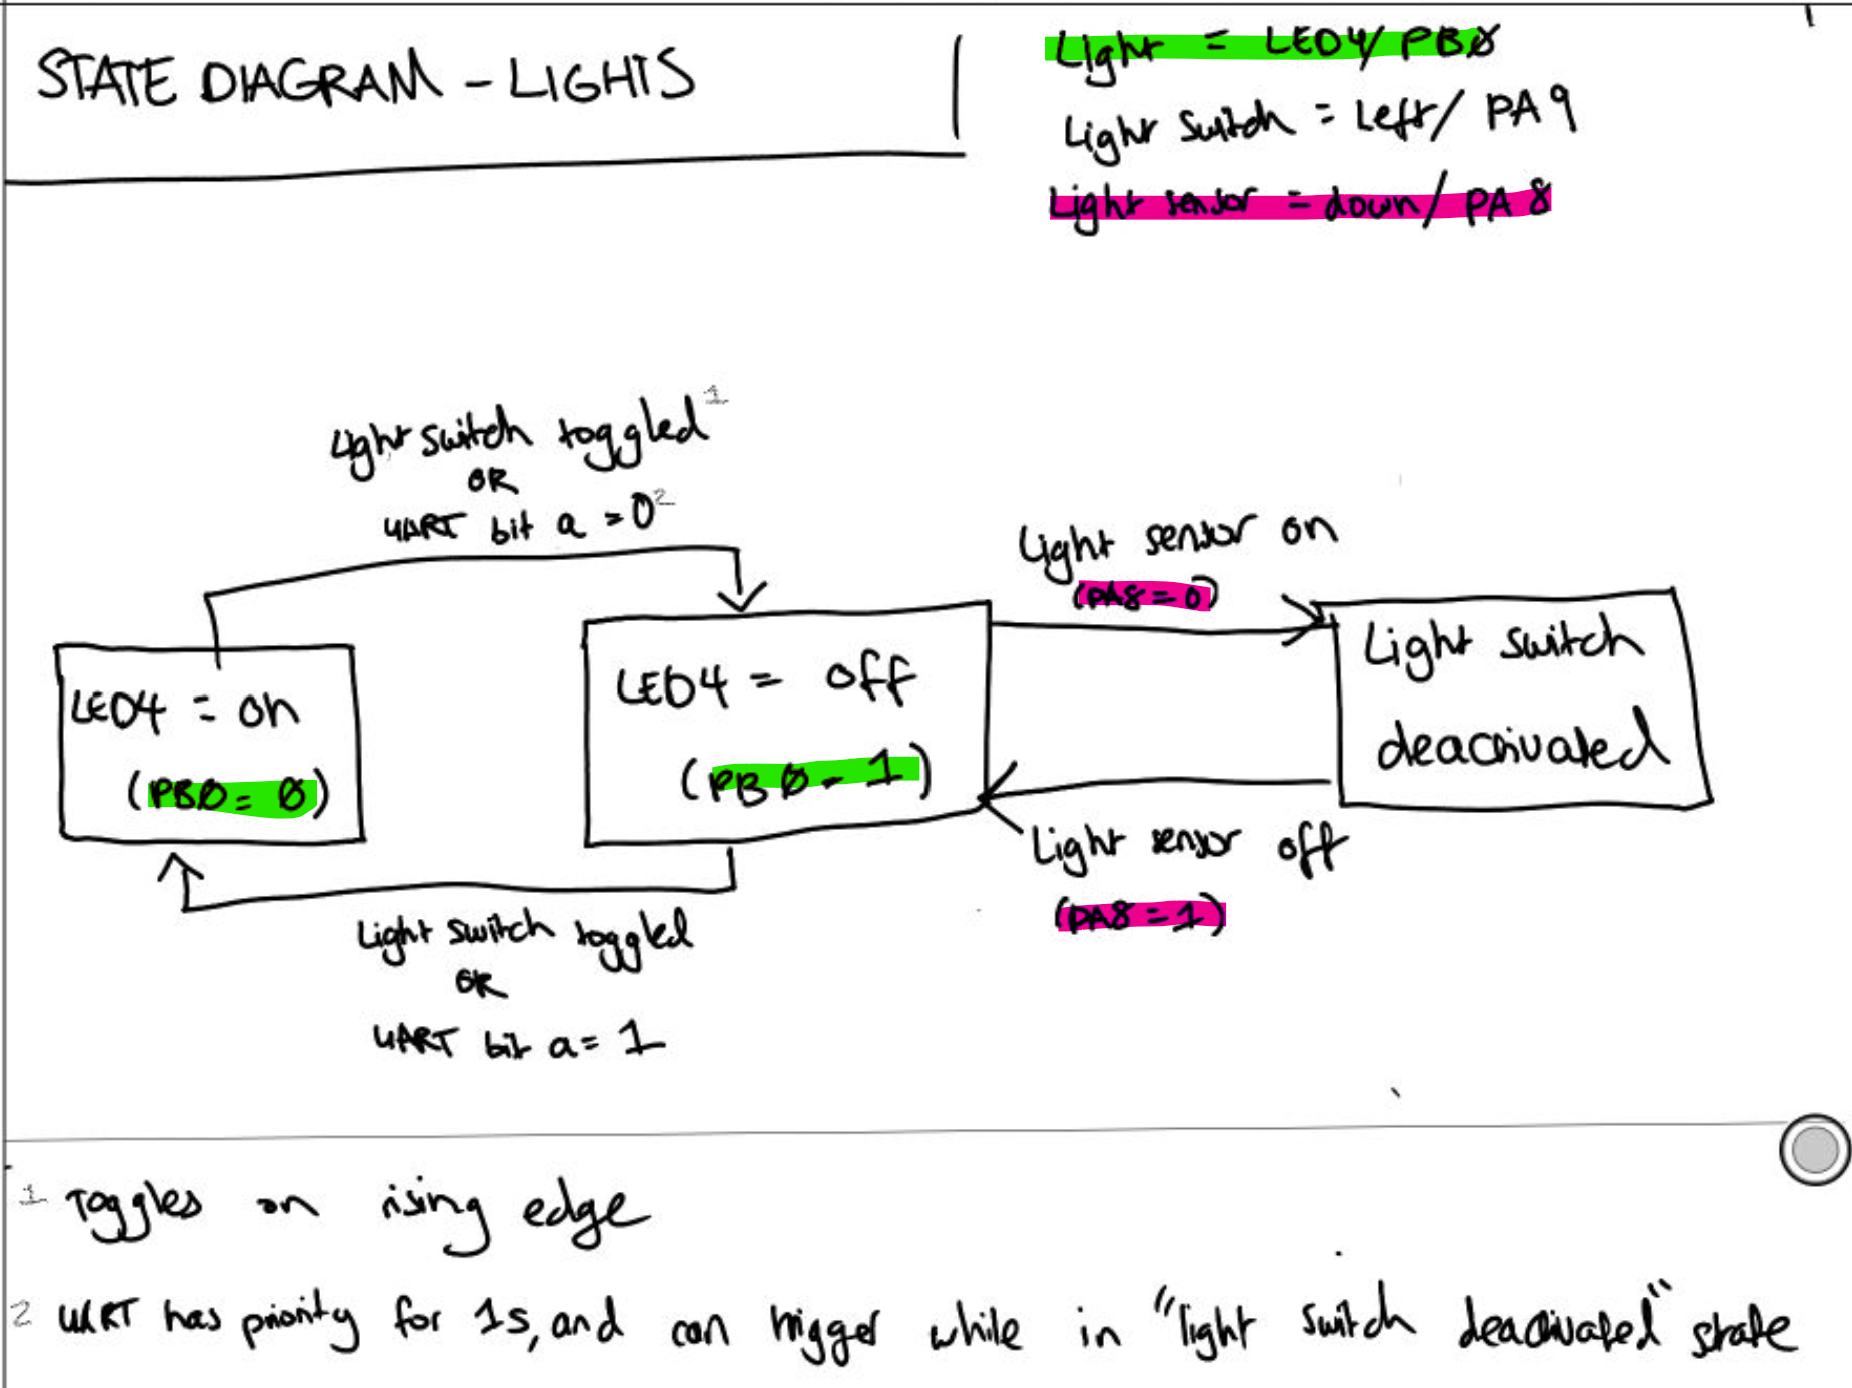 STATE DIAGRAM - LIGHTS
Light = LED4/PB0
Light switch = Left/ PA9
Light sensor = down/ PA8
Light switch toggled 1
OR
UART bit a = 0 2
Light sensor on
(PA8 = 0)
LED4 = on
(PB0 = 0)
LED4 = off
(PB0 = 1)
Light switch
deactivated
Light sensor off
(PA8 = 1)
Light switch toggled
OR
UART bit a = 1
1 Toggles on rising edge
2 UART has priority for 1s, and can trigger while in "light switch deactivated" state